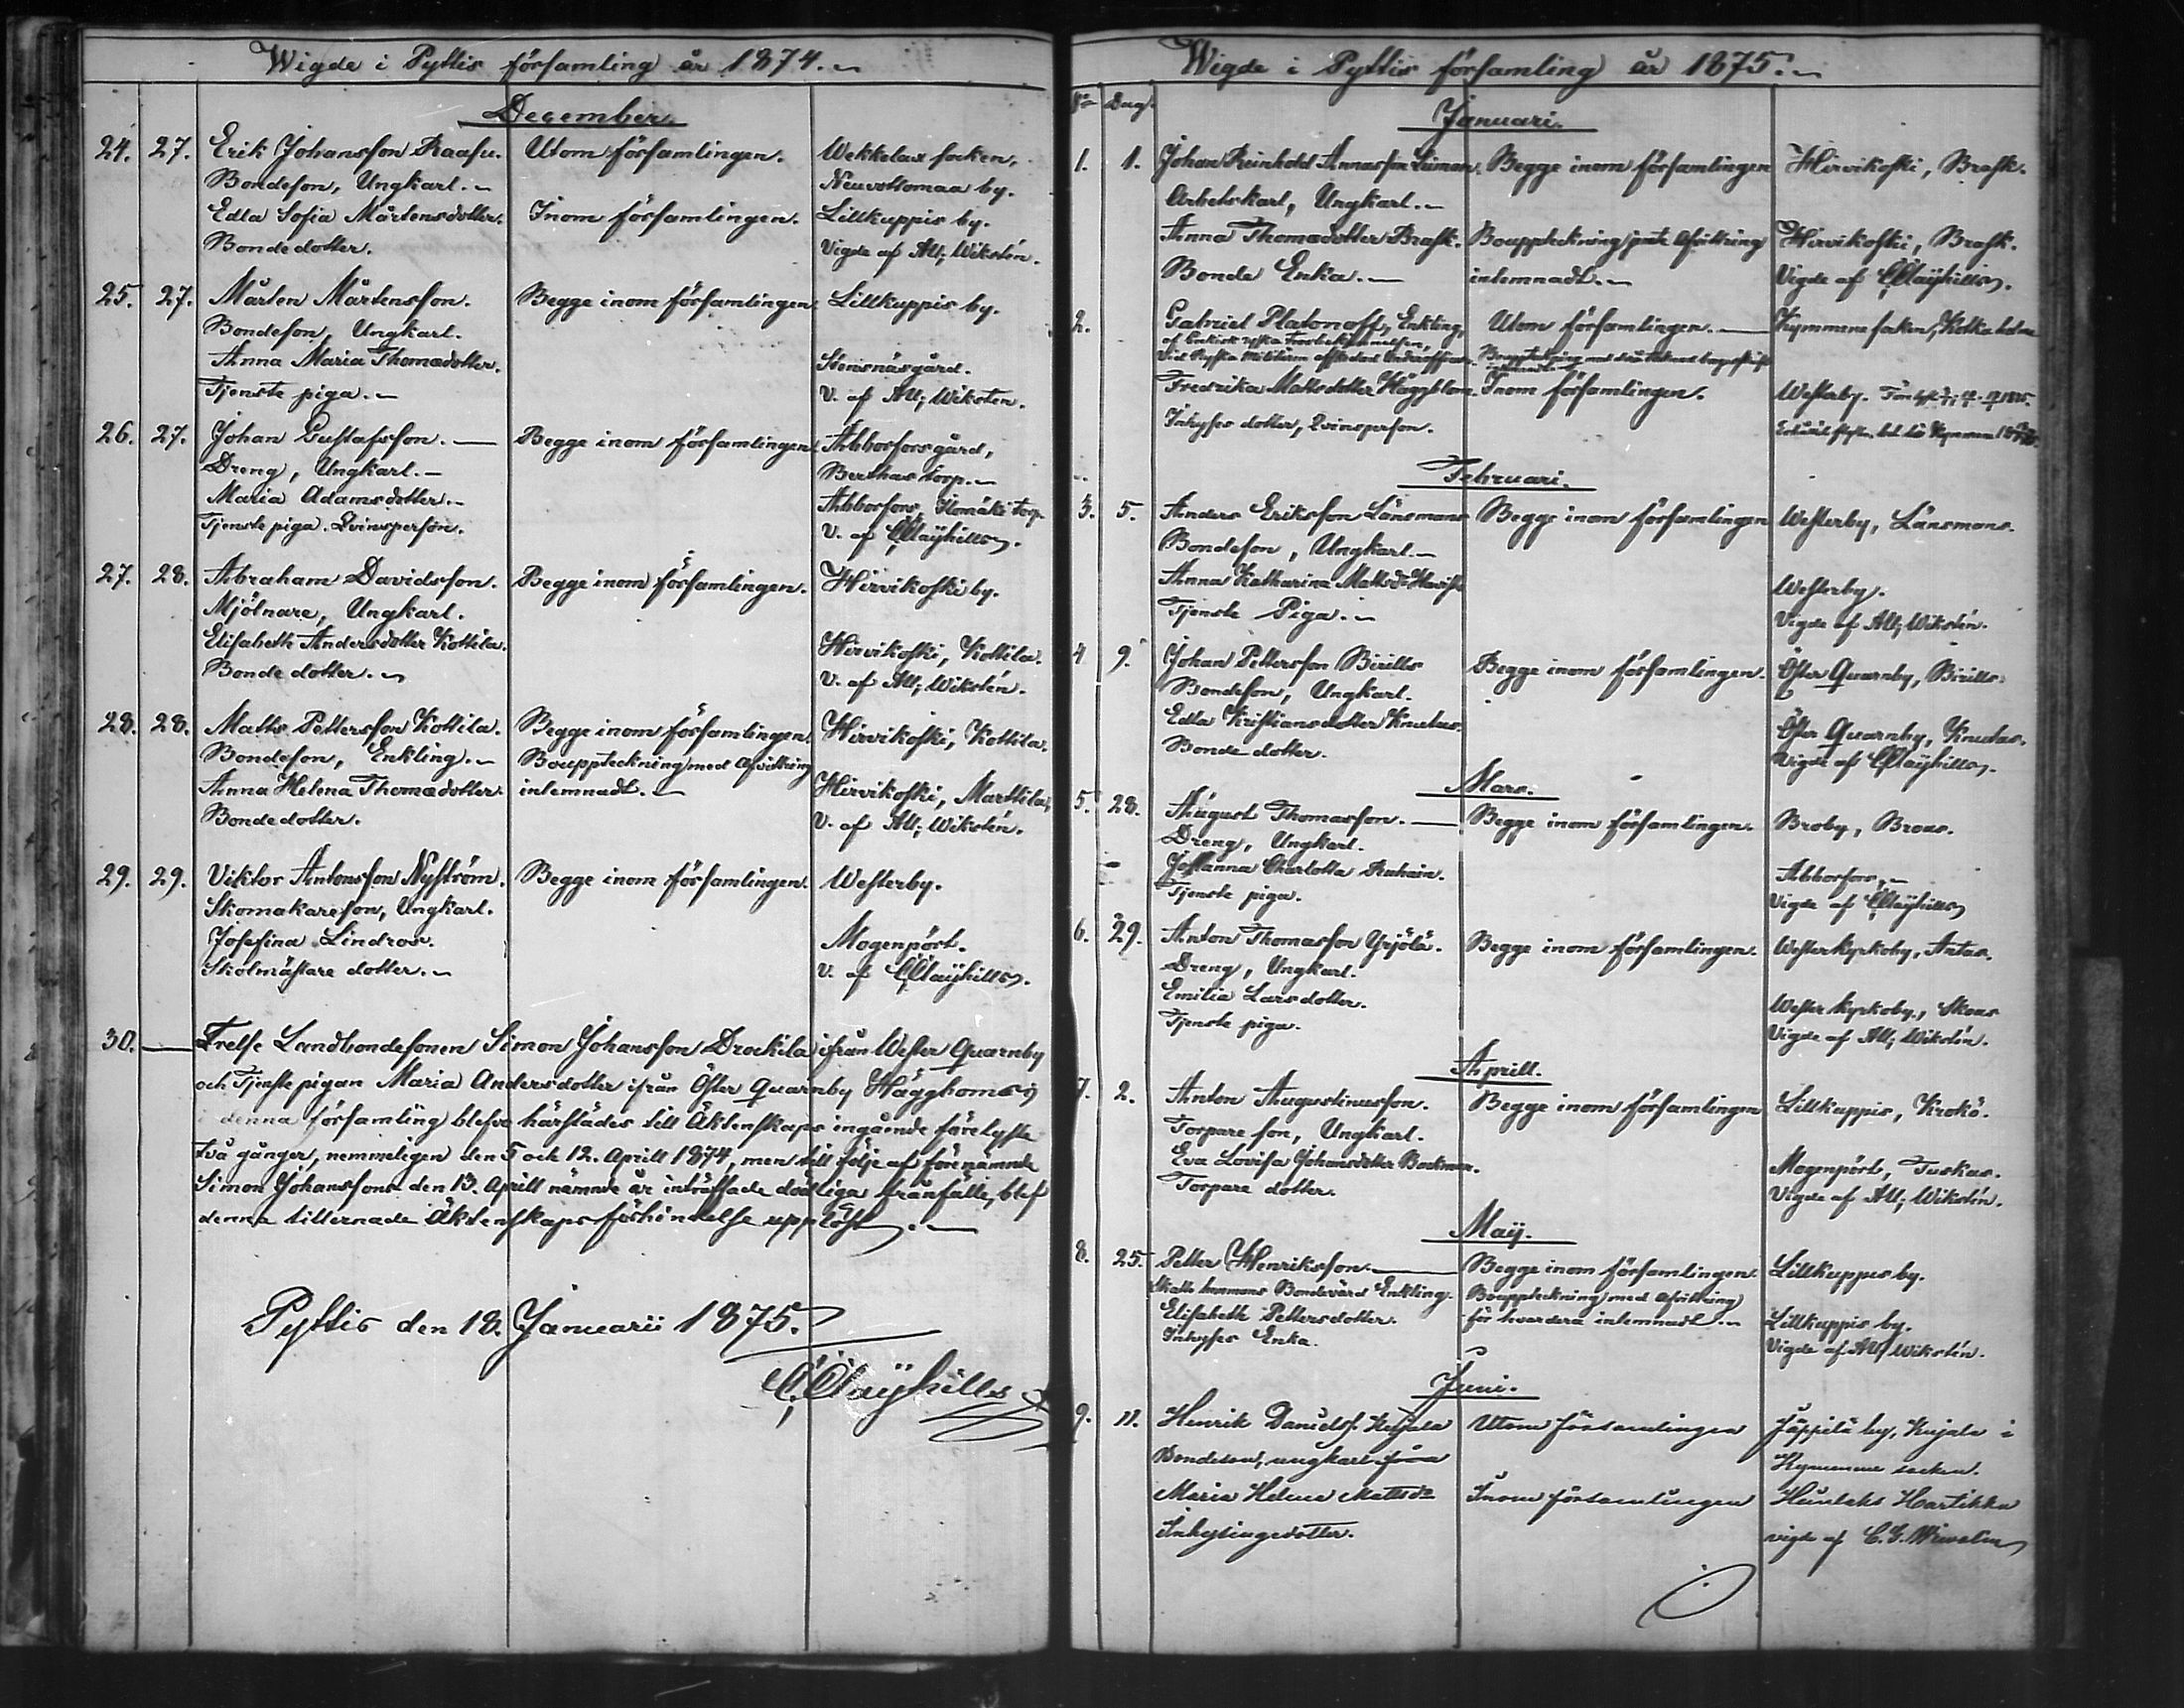 Wigde i Pyttis församling år 1874.
December.
24. 27. Erik Johansson Raasu. Utom församlingen. Wekkelax socken,
Bondeson, Ungkarl. Neuvottomaa by.
Edla Sofia Mårtensdotter. Inom församlingen. Lillkuppis by.
Bondedotter. Vigde af All; Wikstén.
25. 27. Mårten Mårtensson. Begge inom församlingen Lillkuppis by.
Bondeson, Ungkarl.
Anna Maria Thomædotter. Stensnäsgård.
Tjenste piga. V. af All; Wikstén.
26. 27. Johan Gustafsson. Begge inom församlingen Abborforsgård,
Dreng, Ungkarl. Berthas torp.
Maria Adamsdotter. Abborfors, torp
Tjenste piga. Qvinsperson. V. af Clayhills.
27. 28. Abraham Davidsson. Begge inom församlingen. Hirvikoski by.
Mjölnare, Ungkarl.
Elisabeth Andersdotter Kottila. Hirvikoski, Kottila.
Bonde dotter. V. af All; Wikstén.
28. 28. Matts Pettersson Kottila. Begge inom församlingen. Hirvikoski, Kottila.
Bondeson, Enkling. Bouppteckning med Afvittring
Anna Helena Thomædotter inlemnadt. Hirvikoski, Marttila,
Bondedotter. V. af All; Wikstén.
29. 29. Viktor Antonsson Nyström. Begge inom församlingen. Westerby.
Skomakareson, Ungkarl.
Josefina Lindros. Mogenpört.
Skolmästare dotter. V. af Clayhills.
30. Frelse Landbondesonen Simon Johansson Drockila ifrån Wester Quarnby
och Tjenstepigan Maria Andersdotter ifrån Öster Quarnby Hägghomas
i denna församling blefvo härstädes till Äktenskaps ingående förelyste
två gånger, nemmeligen den 5 och 12. Aprill 1874, men till följe af förenämnde
Simon Johanssons den 13. Aprill nämnde år inträffade dödliga frånfälle, blef
denna tillernade Äktenskaps förbindelse upplöst.
Pyttis den 18. Januarii 1875.
Clayhills
Wigde i Pyttis församling år 1875.
No Dag.
Januari.
1. 1. Johan Reinhold Annasson Begge inom församlingen Hirvikoski, Brask.
Arbetskarl, Ungkarl.
Anna Thomædotter Brask. Bouppteckning jemte Afvittring Hirvikoski, Brask.
Bonde Enka. inlemnadt. Vigde af Clayhills.
2. Gabriel Platonoff, Enkling, Utom församlingen. Kymmene socken, Kotka holme
af Grekisk ryska
Vid Ryska Militären afskedad Underofficer.
Fredrika Mattsdotter Häggblom. Inom församlingen. Westerby.
Inhyses dotter, Qvinsperson.
Februari.
3. 5. Anders Eriksson Länsmans Begge inom församlingen Westerby, Länsmans.
Bondeson, Ungkarl.
Anna Katharina Mattsdr Westerby.
Tjenste Piga. Vigde af All; Wikstén.
4 9. Johan Pettersson Birills Begge inom församlingen. Öster Quarnby, Birills.
Bondeson, Ungkarl.
Edla Kristiansdotter Knutas. Öster Quarnby, Knutas.
Bonde dotter. Vigde af Clayhills.
Mars.
5. 28. August Thomasson. Begge inom församlingen. Broby, Broas.
Dreng, Ungkarl.
Johanna Charlotta Abborfors,
Tjenste piga. Vigde af Clayhills
6. 29. Anton Thomasson Yrjölä. Begge inom församlingen. Westerkyrkoby, Antas.
Dreng, Ungkarl.
Emilia Larsdotter. Westerkyrkoby, Skons
Tjenste piga. Vigde af All; Wikstén.
Aprill.
7. 2. Anton Augustinusson. Begge inom församlingen Lillkuppis, Krokö.
Torpare son, Ungkarl.
Eva Lovisa Johansdotter Backman. Mogenpört, Tuskas.
Torpare dotter. Vigde af All; Wikstén.
Maij.
8. 25. Petter Henriksson. Begge inom församlingen. Lillkuppis by.
Skatte hemmans Bondevärd Enkling. Bouppteckning med Afvittring
Elisabeth Pettersdotter. för hvardera inlemnadt. Lillkuppis by.
Inhyses Enka. Vigde af All; Wikstén.
Juni.
9. 11. Henrik Daniels. Kujala Utom församlingen Jäppilä by, Kujala i
Bondeson, ungkarl Kymmene socken.
Maria Helena Mattsdr Inom församlingen Heinlaks Hartikka
Inhysingedotter. vigde af